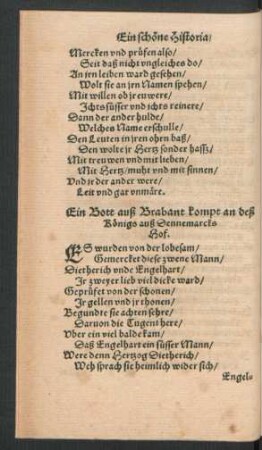 Ein schöne Historia/
Mercken vnd prüfen also/
Seit daß nicht vngleiches do/
An jren leiben ward gesehen/
Wolt sie an jrn Namen spehen/
Mit willen ob jr euwere/
Ichts süsser vnd ichts reinere/
Dann der ander hulde/
Welches Nam erschulle/
Den Leuten in jren ohren baß/
Den wolte jr Hertz sonder hassz/
Mit treuwen vnd mit lieben/
Mit Hertz/muht vnd mit sinnen/
Vnd jeder ander were/
Leit vnd gar vnmäre.
Ein Bott auß Brabant kompt an deß
Königs auß Dennemarcks
Hof.
ES wurden von der lobesam/
Gemercket diese zwene Mann/
Dietherich vnde Engelhart/
Jr zweyer lieb viel dicke ward/
Geprüfet von der schonen/
Jr gellen vnd jr thonen/
Begundte sie achten sehre/
Daruon die Tugent here/
Vber ein viel balde kam/
Daß Engelhart ein süsser Mann/
Were denn Hertzog Dietherich/
Weh sprach sie heimlich wider sich/
Engel-